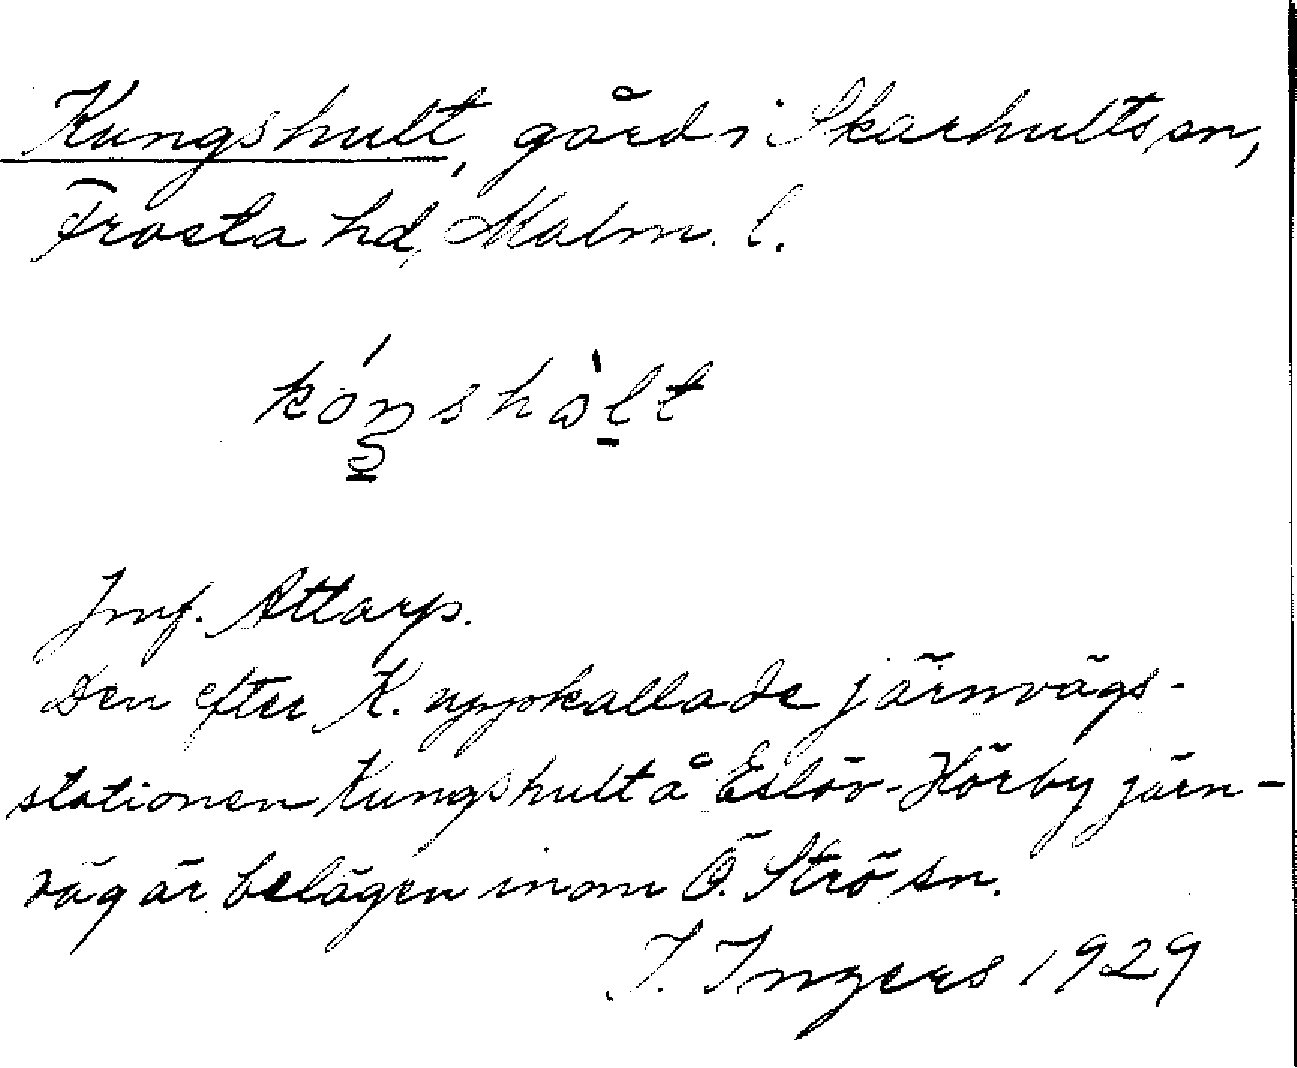 Kungshult, gård i Skarhults sn,
Frosta hd, Malm. l.
kóŋshàlt
Jmf. Attarp.
Den efter K. uppkallade järnvägs-
stationen Kungshult å Eslöv-Hörby järn-
väg är belägen inom Ö. Strö sn.
I. Ingers 1929